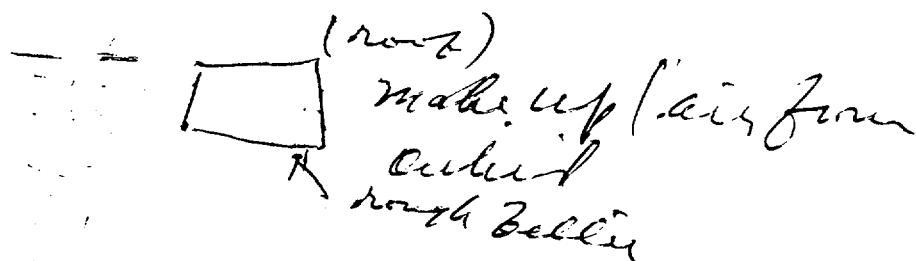 (roof)
make up / air from
outside
rough filter